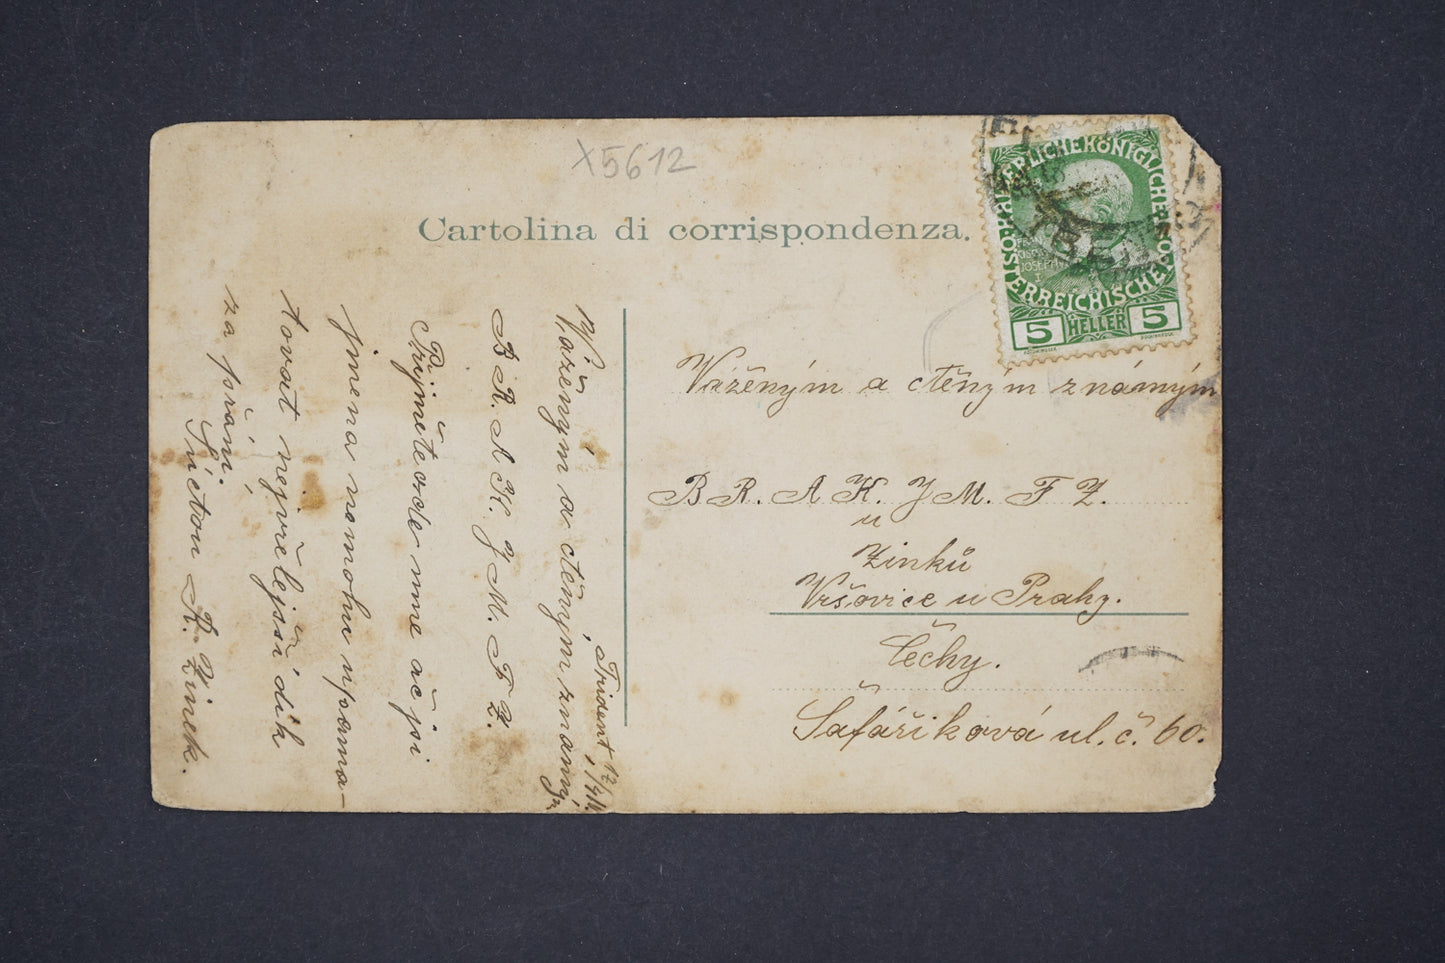 X5612
Cartolina di corrispondenza.
KAISERLICHE KÖNIGLICHE
ÖSTERREICHISCHE
5 HELLER 5
Váženým a ctěným známým
B R. A K. J M. F Z.
u
Zinků
Vršovice u Prahy.
Čechy.
Šafáříková ul. č. 60.
Trident
Váženým a ctěným známým
B R. A K. J M. F Z.
Přijměte ode mne ač jsi
jmena nemohu vpama-
tovat nejvřelejší dík
za přání.
S úctou R. Zinek.